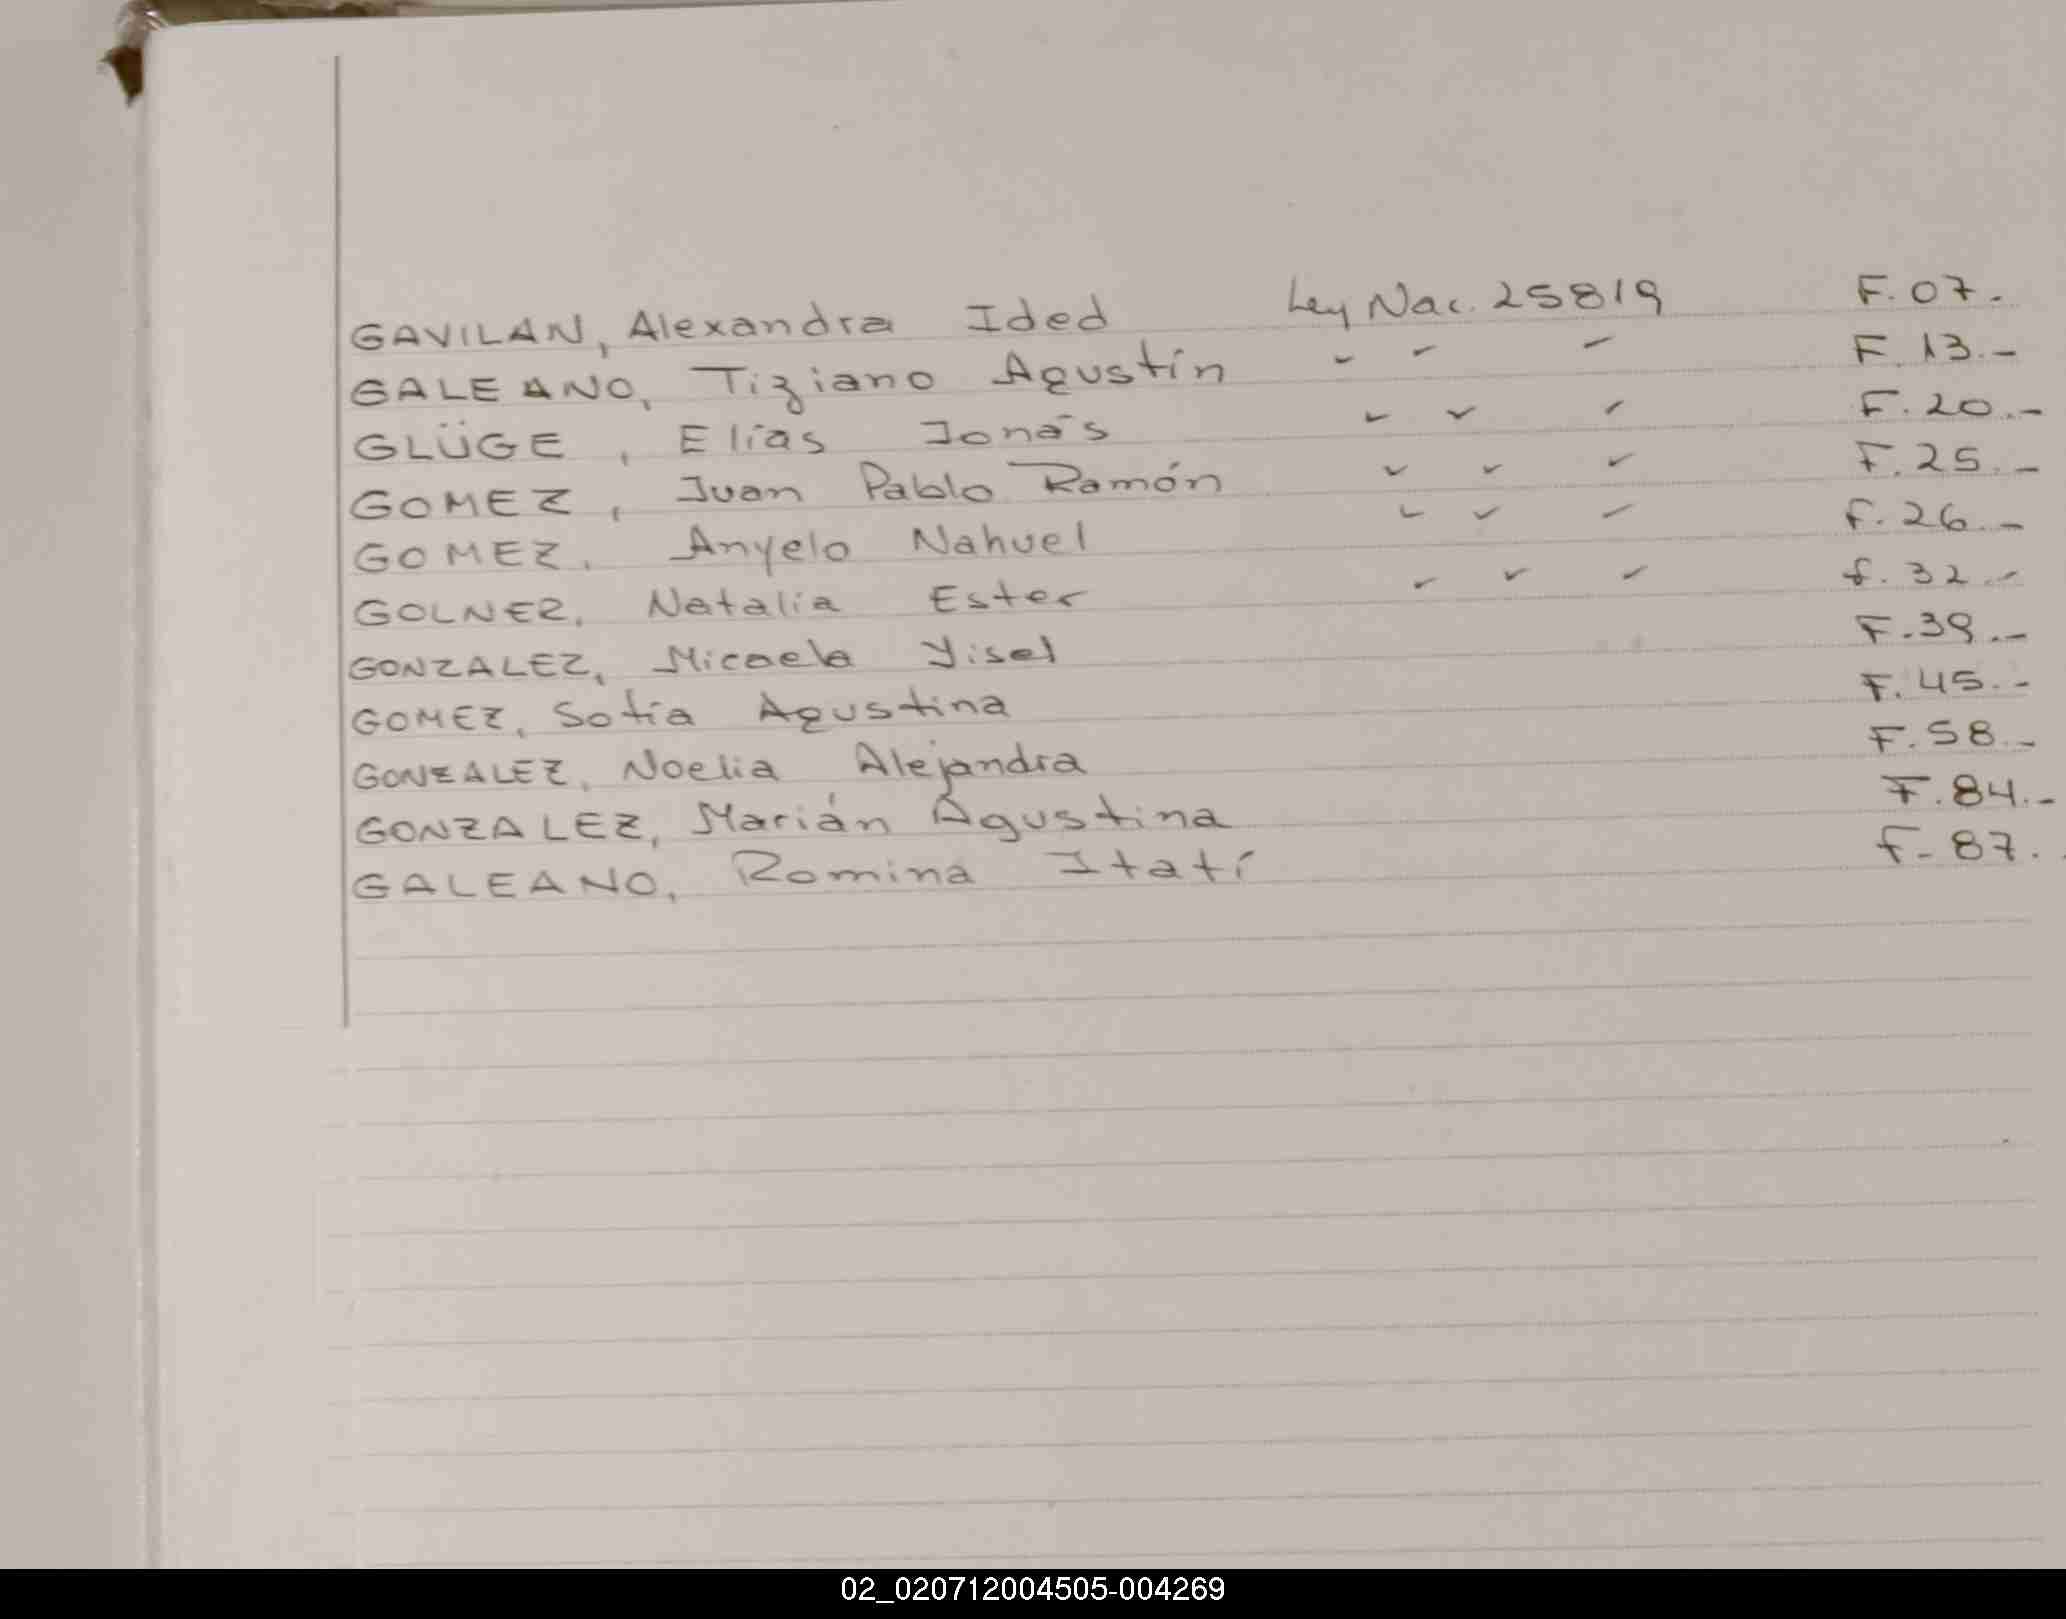 GAVILAN, Alexandra Ided Ley Nac. 25819 F. 07.
GALEANO, Tiziano Agustín " " " F. 13.-
GLÜGE, Elías Jonás " " " F. 20.-
GOMEZ, Juan Pablo Ramón " " " F. 25.-
GOMEZ, Anyelo Nahuel " " " F. 26.-
GOLNER, Natalia Ester " " " f. 32.-
GONZALEZ, Micaela Yisel F. 39.-
GOMEZ, Sofía Agustina F. 45.-
GONZALEZ, Noelia Alejandra F. 58.-
GONZALEZ, Marián Agustina F. 84.-
GALEANO, Romina Itatí F- 87.
02_020712004505-004269